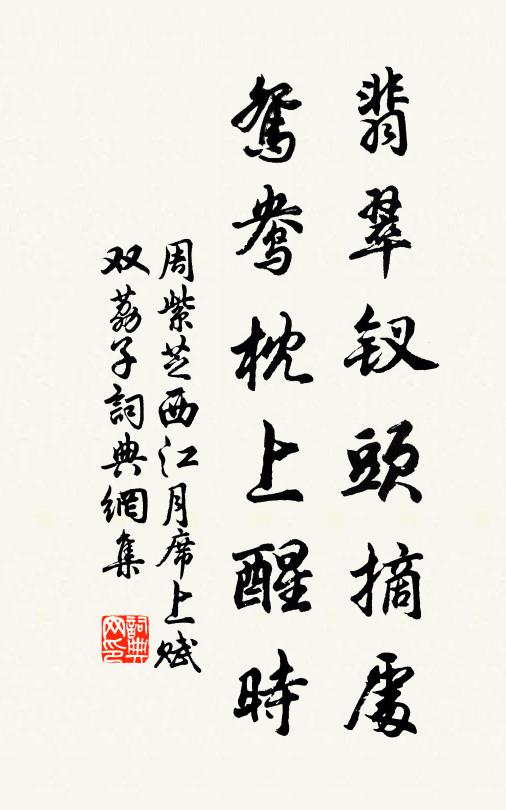 翡翠钗頭摘處
鸳鸯枕上醒時
周紫芝西江月席上赋
双荔子詞典網集
詞典
网印